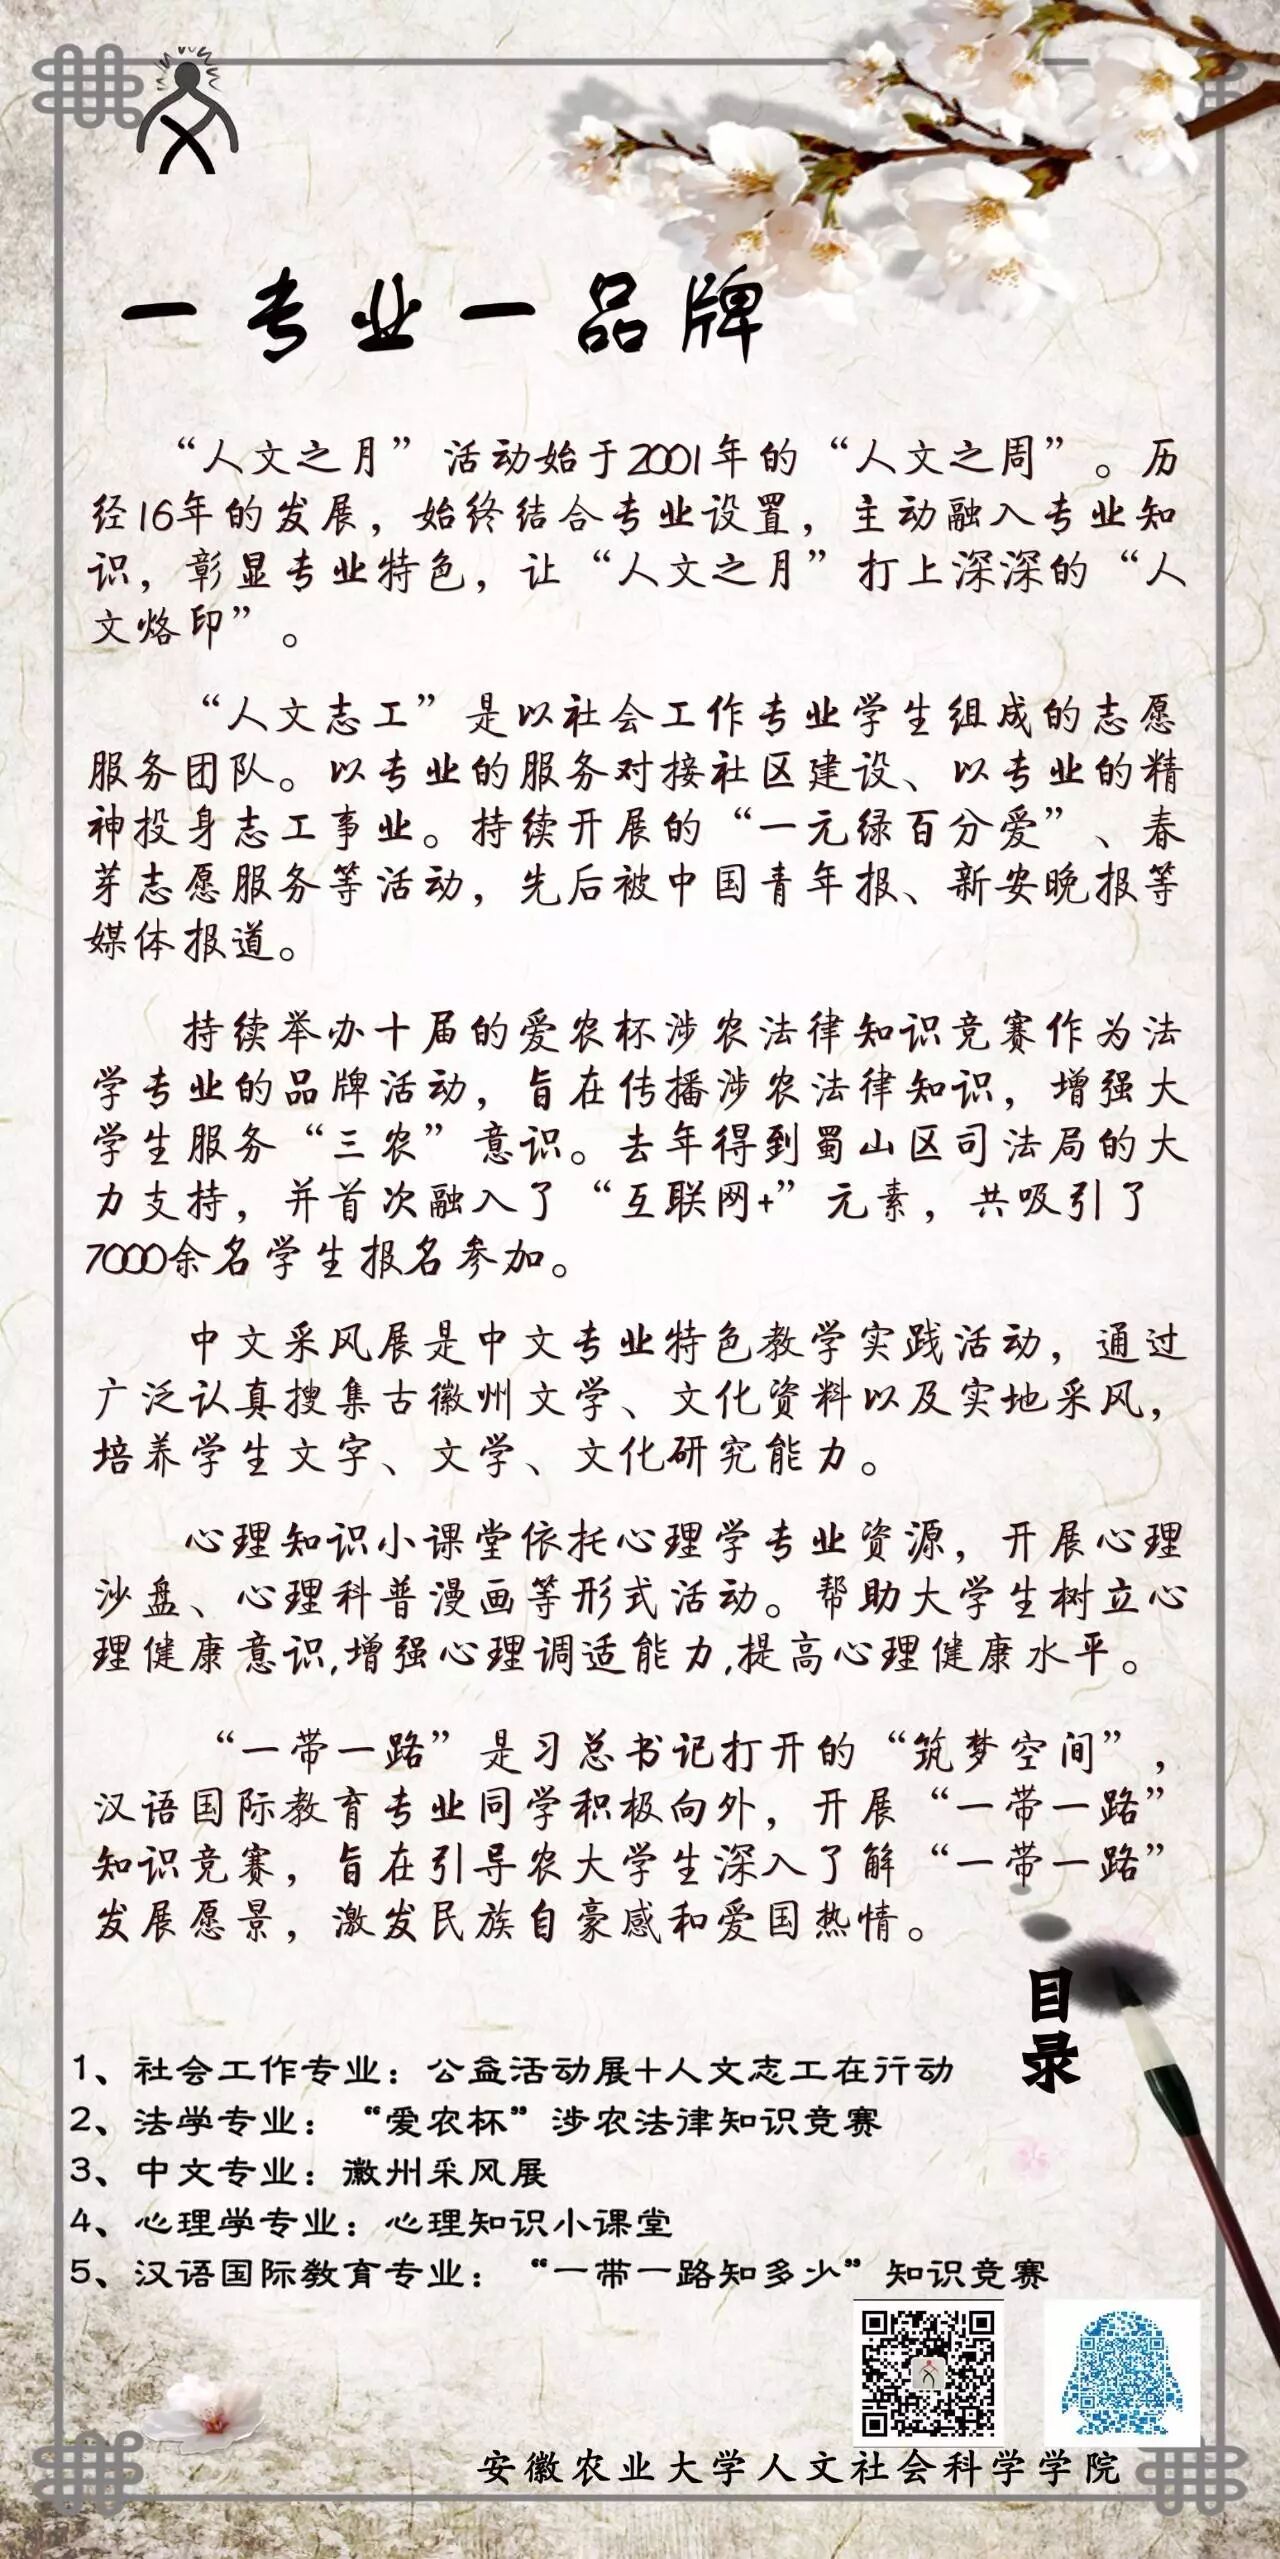 一专业一品牌
“人文之月”活动始于2001年的“人文之周”。历
经16年的发展，始终结合专业设置，主动融入专业知
识，彰显专业特色，让“人文之月”打上深深的“人
文烙印”。
“人文志工”是以社会工作专业学生组成的志愿
服务团队。以专业的服务对接社区建设、以专业的精
神投身志工事业。持续开展的“一元绿百分爱”、春
芽志愿服务等活动，先后被中国青年报、新安晚报等
媒体报道。
持续举办十届的爱农杯涉农法律知识竞赛作为法
学专业的品牌活动，旨在传播涉农法律知识，增强大
学生服务“三农”意识。去年得到蜀山区司法局的大
力支持，并首次融入了“互联网+”元素，共吸引了
7000余名学生报名参加。
中文采风展是中文专业特色教学实践活动，通过
广泛认真搜集古徽州文学、文化资料以及实地采风，
培养学生文字、文学、文化研究能力。
心理知识小课堂依托心理学专业资源，开展心理
沙盘、心理科普漫画等形式活动。帮助大学生树立心
理健康意识,增强心理调适能力,提高心理健康水平。
“一带一路”是习总书记打开的“筑梦空间”，
汉语国际教育专业同学积极向外，开展“一带一路”
知识竞赛，旨在引导农大学生深入了解“一带一路”
发展愿景，激发民族自豪感和爱国热情。
目录
1、社会工作专业：公益活动展+人文志工在行动
2、法学专业：“爱农杯”涉农法律知识竞赛
3、中文专业：徽州采风展
4、心理学专业：心理知识小课堂
5、汉语国际教育专业：“一带一路知多少”知识竞赛
安徽农业大学人文社会科学学院